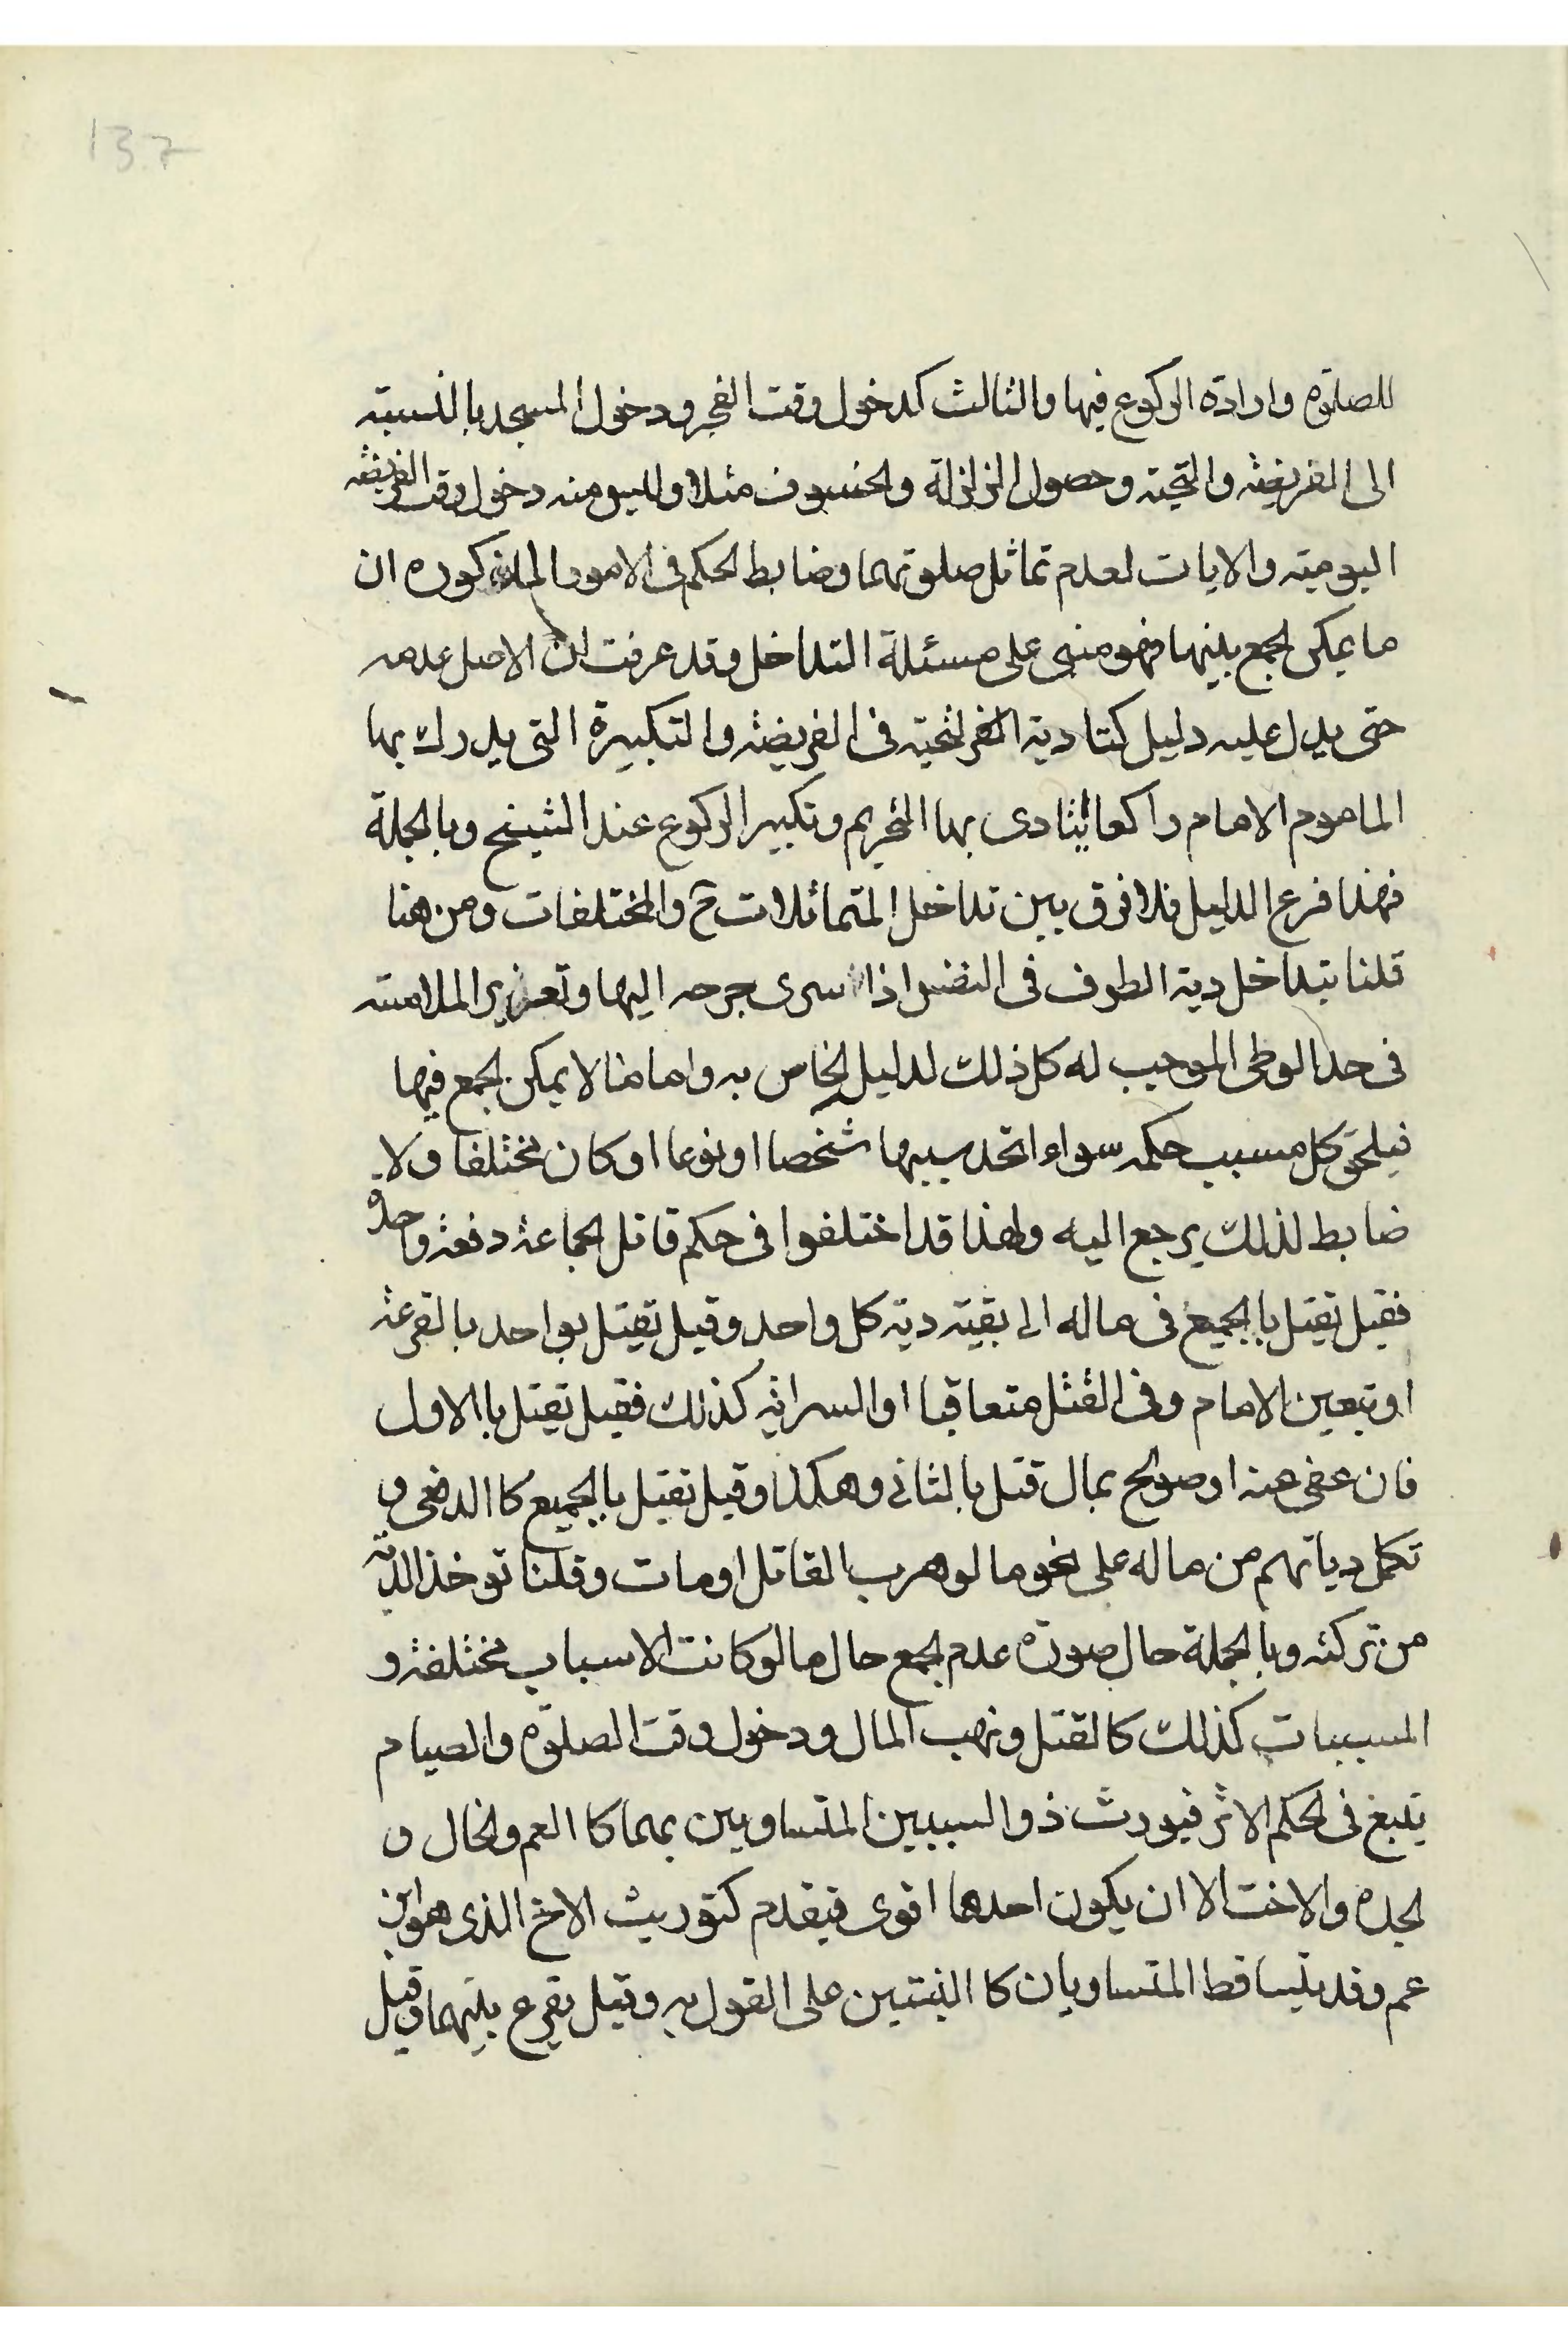 137
للصلوة وارادة الركوع فيها والثالث كدخول وقت الفجر ودخول المسجد بالنسبته
الى الفريضه والتحيته وحصول الزلزلة والخسوف مثلا وليس منه دخول وقت الفريضه
اليوميته والايات لعدم تماثل صلوتهما وضابط الحكم فى الامور المذكوره ان
ما يمكن الجمع بينها فهو مبنى على مسئلة التداخل وقد عرفت ان الاصل عدمه
حتى يدل عليه دليل كتادية التحيته فى الفريضه والتكبيرة التى يدرك بها
الماموم الامام راكعا يتادى بها التحريم وتكبير الركوع عند الشيخ وبالجملة
فهذا فرع الدليل فلا فرق بين تداخل المتماثلات ح والمختلفات ومن هنا
قلنا بتداخل دية الطرف فى النفس اذا سرى جرحه اليها وتعزير الملامسته
فى حد الوطى الموجب له كل ذلك لدليل الخاص به واما ما لا يمكن الجمع فيها
فيلحق كل مسبب حكمه سواء اتحد سببها شخصا او نوعا او كان مختلفا ولا
ضابط لذلك يرجع اليه ولهذا قد اختلفوا فى حكم قاتل الجماعة دفعة واحدة
فقيل تقيتل باالجميع فى ماله الى بقيته ديته كل واحد وقيل تقيتل بواحد بالقرعة
او تبعين الامام وفى القتل متعاقبا او السراية كذلك فقيل تقيتل باالاول
فان عفى عنه او صولح بمال قتل بالثانى وهكذا وقيل تقيتل باالجميع كاالدفعى و
تكمل دياتهم من ماله على نحو ما لو هرب القاتل او مات وقلنا توخذ الدية
من تركته وبالجملة حال صورة عدم الجمع حال ما لو كانت الاسباب مختلفة و
المسببات كذلك كالقتل ونهب المال ودخول وقت الصلوة والصيام
يتبع فى الحكم الاثر فيورث ذو السببين المتساويين بهما كاالعم والخال و
الجده والاخت الا ان يكون احدهما اقوى فيقدم كتوريث الاخ الذى هو ابن
عم وقد يتساقط المتساويان كاالبينتين على القول به وقيل يقرع بينهما وقيل